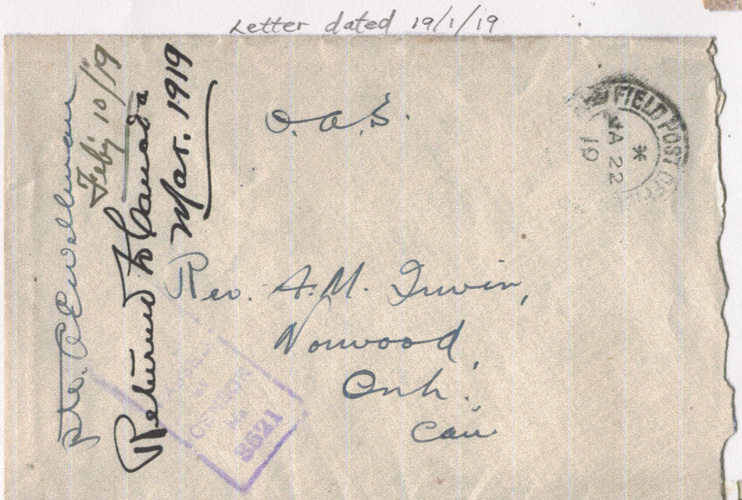 Letter dated 19/1/19
O.A.S.
FIELD POST OFFICE
JA 22
19
Rev. A.M. Irwin,
Norwood,
Ont.,
Can
PASSED
BY
CENSOR
No
3621
Feby 10/19
Returned to Canada
Mar. 1919